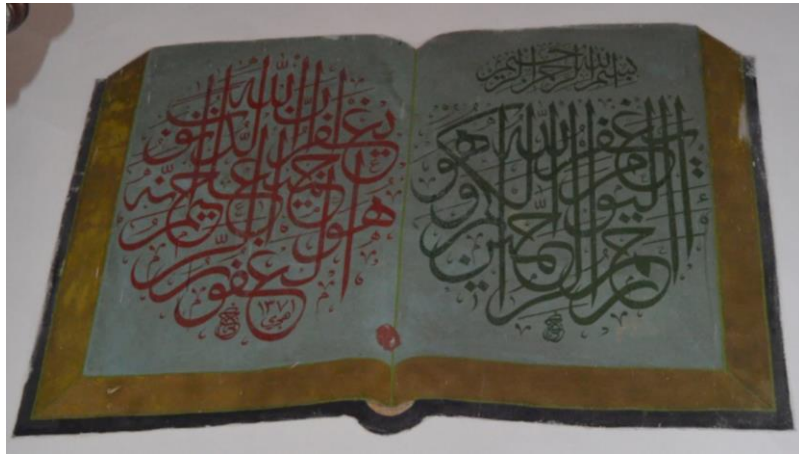 بسم الله الرحمن الرحيم
اليوم يغفر الله لكم وهو أرحم الراحمين
إن الله يغفر الذنوب جميعا إنه هو الغفور الرحيم
١٣٧١